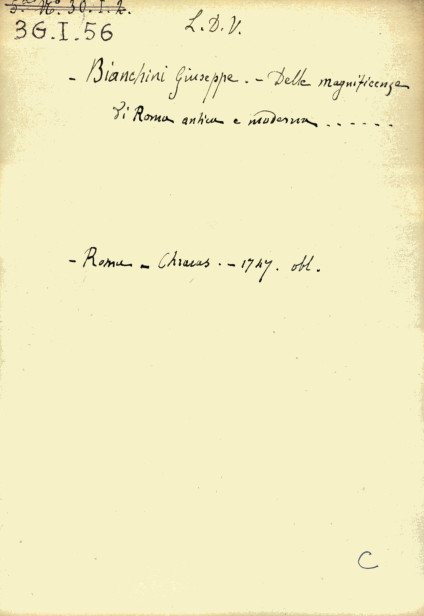 36.I.56
L.D.V.
- Bianchini Giuseppe. - Delle magnificenze
di Roma antica e moderna . . . . . .
- Roma - Chracas. - 1747. obl.
C